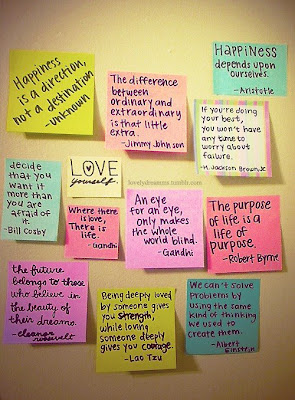 Happiness
is a direction,
not a destination
-unknown
The difference
between
ordinary and
extraordinary
is that little
extra.
-Jimmy Johnson
HAPPINESS
depends upon
ourselves.
-Aristotle
If you're doing
your best,
you won't have
any time to
worry about
failure.
-H. Jackson Brown, Jr.
decide
that you
want it
more than
you are
afraid of
it.
-Bill Cosby
LOVE
yourself.
lovelydreamss.tumblr.com
Where there
is love,
There is
life.
-Gandhi
An eye
for an eye,
only makes
the whole
world blind.
-Gandhi
The purpose
of life is a
life of
purpose.
-Robert Byrne
the future
belongs to those
who believe in
the beauty of
their dreams.
-eleanor roosevelt
Being deeply loved
by someone gives
you strength,
while loving
someone deeply
gives you courage.
-Lao Tzu
We can't solve
problems by
using the same
kind of thinking
we used to
create them.
-Albert
Einstein